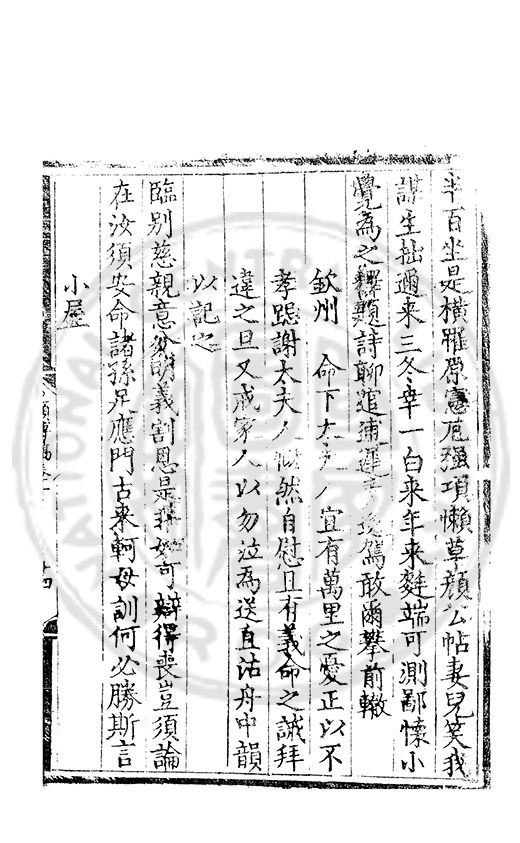 半百坐是橫罹原憲厄强項懶草顏公帖妻兒笑我
謀生拙邇来三冬幸一白来年来麰端可測鄙懷小
覺為之釋題詩聊追逋逸駕敢爾攀前轍
欽州命下太夫人宜有萬里之憂正以不
孝跽謝太夫人慨然自慰且有義命之誠拜
違之旦又戒家人以勿泣為送直沽舟中韻
以記之
臨別慈親意狄明義割恩是非如可辯得喪豈須論
在汝須安命諸孫足應門古来軻母訓何必勝斯言
小屋